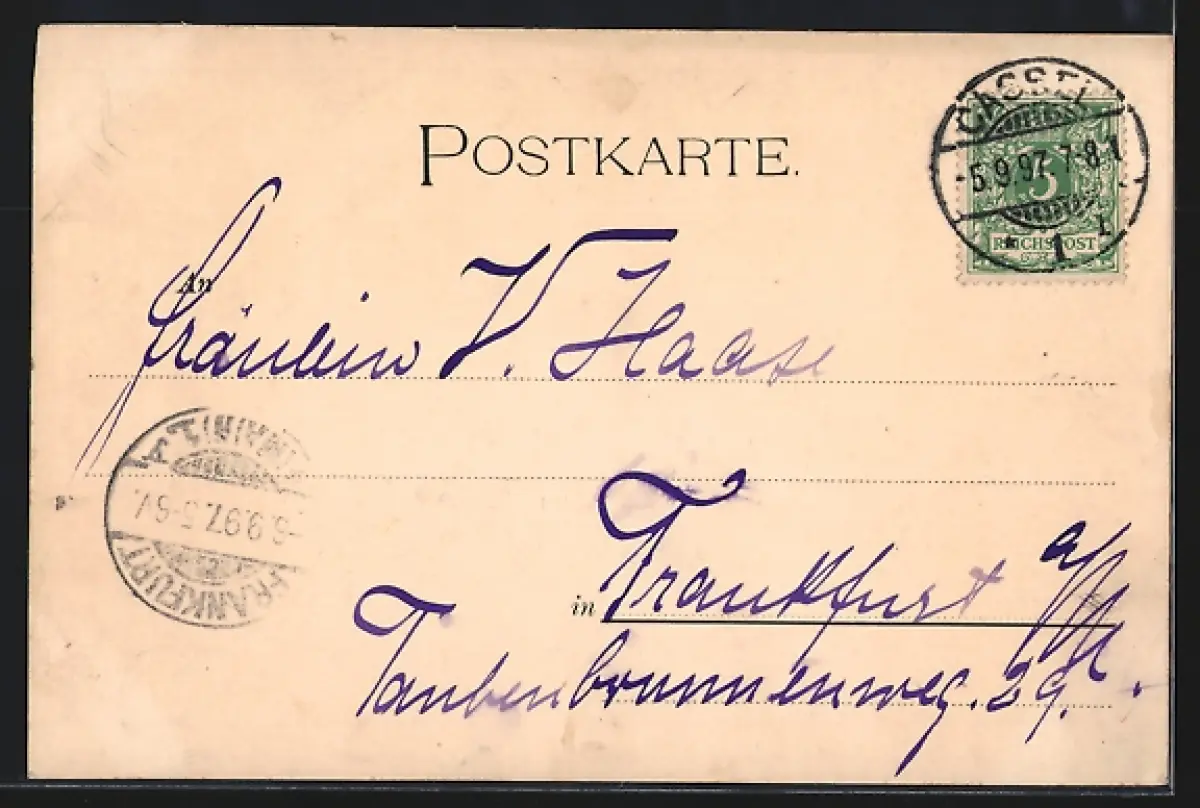 POSTKARTE.
CASSEL
-5.9.97. 7-8
* 1
5
REICHSPOST
An
Fräulein V. Haase
in Frankfurt a/M.
Taubenbrunnenweg. 29.
FRANKFURT
(MAIN) 1.
-6.9.97. 5-6V.